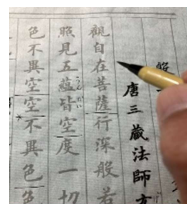 般
唐三藏法師玄
觀自在菩薩行深般若
照見五蘊皆空度一切
色不異空空不異色